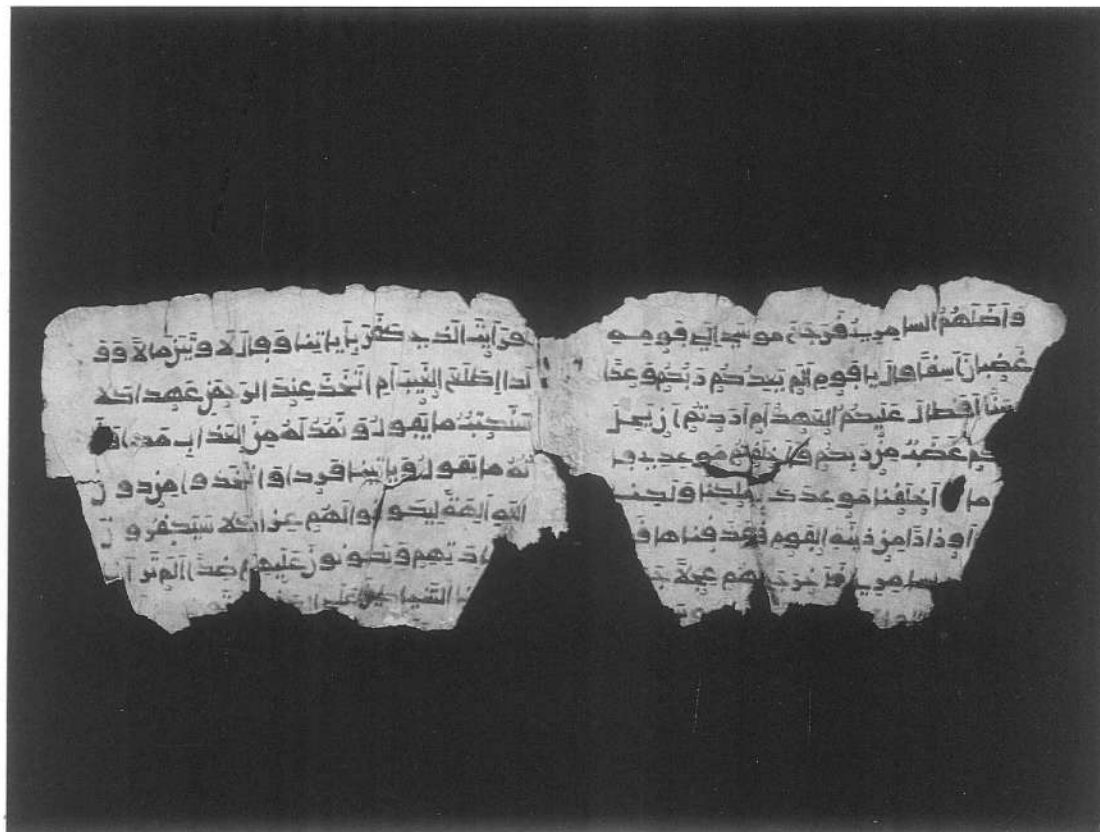 وَأَضَلَّهُمُ السامِرِيُّ فَرَجَعَ موسى إلى قومه
غَضْبانَ أَسِفًا قال يا قوم ألم يعدكم ربكم وَعدًا
حسنا أفطال عليكم العهد أم أردتم أن يحل
كم غضب من ربكم فأخلفتم موعدي قا
ما أخلفنا موعدك بملكنا ولكنا
أوزارا من زينة القوم فقذفناها فـ
السامري فأخرج لهم عجلا جـ
أفرأيت الذي كفر بآياتنا وقال لأوتين مالا وو
لدا اطلع الغيب أم اتخذ عند الرحمن عهدا كلا
سنكتب ما يقول ونمد له من العذاب مدا و
نرثه ما يقول ويأتينا فردا واتخذوا من دون
الله آلهة ليكونوا لهم عزا كلا سيكفرون
دتهم ويكونون عليهم ضدا ألم تر أ
نا الشياطين على